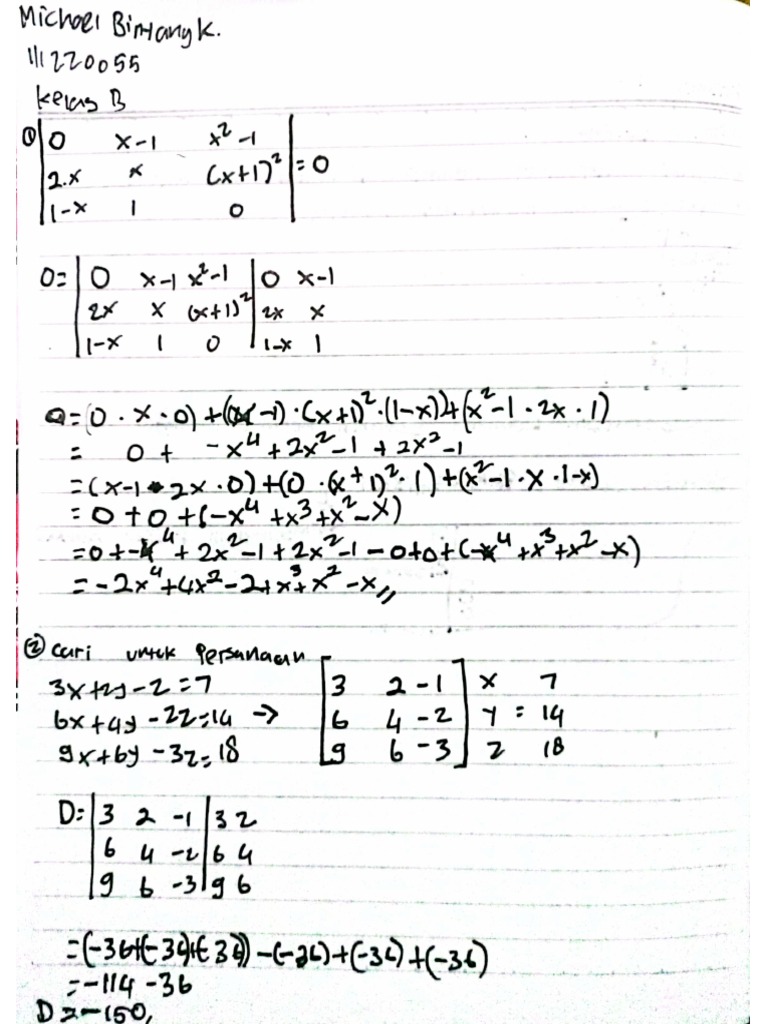 Michael Bintang K.
111220055
Kelas B
① |0 x-1 x²-1|
|2.x x (x+1)²| = 0
|1-x 1 0|
0= |0 x-1 x²-1 |0 x-1
|2x x (x+1)² |2x x
|1-x 1 0 |1-x 1
0=(0 . x . 0) + ((x-1) . (x+1)² . (1-x)) + (x²-1 . 2x . 1)
= 0 + -x⁴+2x²-1 + 2x²-1
= (x-1 . 2x . 0) + (0 . (x+1)² . 1) + (x²-1 . x . 1-x)
= 0 + 0 + (-x⁴ +x³+x²-x)
= 0 + -x⁴ + 2x²-1 + 2x²-1 - 0+0 + (-x⁴ +x³+x²-x)
= -2x⁴+4x²-2+x³+x²-x,,
② Cari untuk Persamaan
3x+2y-z=7 [3 2 -1] x 7
6x+4y-2z=14 → [6 4 -2] y = 14
9x+6y-3z=18 [9 6 -3] z 18
D= |3 2 -1|3 2
|6 4 -2|6 4
|9 6 -3|9 6
=(-36+(-36)+(-36))-(-36)+(-36)+(-36)
= -114 -36
D = -150,